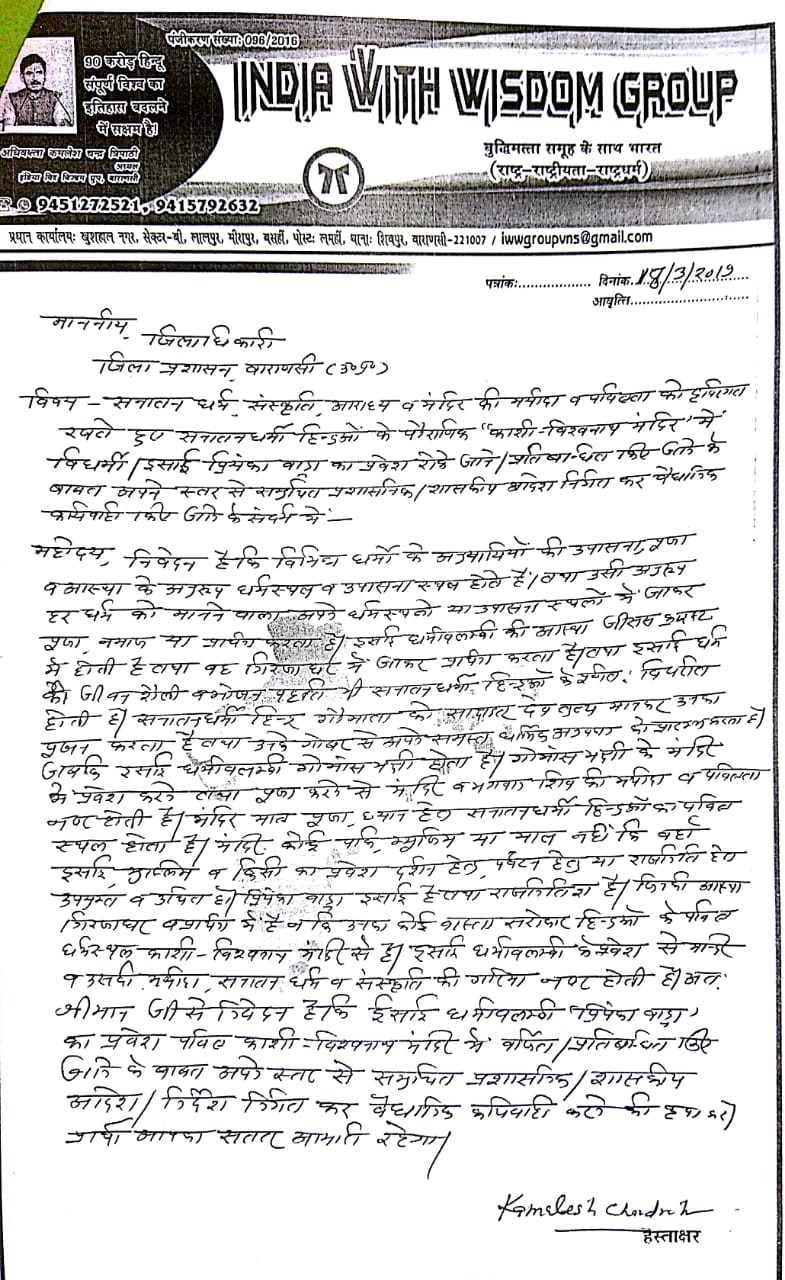 पंजीकरण संख्या: 096/2016
90 करोड़ हिन्दू
संपूर्ण विश्व का
इतिहास बदलने
में सक्षम है!
INDIA WITH WISDOM GROUP
बुद्धिमत्ता समूह के साथ भारत
(राष्ट्र-राष्ट्रीयता-राष्ट्रधर्म)
अधिवक्ता कमलेश चन्द्र त्रिपाठी
अध्यक्ष
इंडिया विथ विजडम ग्रुप, वाराणसी
9451272521, 9415792632
प्रधान कार्यालय: खुशहाल नगर, सेक्टर-बी, लालपुर, मीरापुर, बसहीं, पोस्ट: लमही, थाना: शिवपुर, वाराणसी-221007 / iwwgroupvns@gmail.com
पत्रांक:.................. दिनांक.18/3/2019
आवृत्ति..............................
माननीय,
जिलाधिकारी
जिला प्रशासन, वाराणसी (उ०प्र०)
विषय - सनातन धर्म, संस्कृति, आराध्य व मंदिर की मर्यादा व पवित्रता को दृष्टिगत
रखते हुए सनातनधर्मी हिन्दुओं के पौराणिक "काशी-विश्वनाथ मंदिर" में
विधर्मी/इसाई प्रियंका वाड्रा का प्रवेश रोके जाने/प्रतिबाधित किए जाने के
बावत अपने स्तर से समुचित प्रशासनिक/शासकीय आदेश निर्गत कर वैधानिक
कार्यवाही किए जाने के संदर्भ में:-
महोदय, निवेदन है कि विभिन्न धर्मों के अनुयायियों की उपासना, पूजा
व आस्था के अनुरूप धर्मस्थल व उपासना स्थल होते हैं। तथा उसी अनुरूप
हर धर्म को मानने वाला अपने धर्मस्थलों या उपासना स्थलों में जाकर
पूजा, नमाज या प्रार्थना करता है। इसाई धर्मावलम्बी की आस्था जीसस क्राइस्ट
में होती है तथा वह गिरजाघर में जाकर प्रार्थना करता है। तथा इसाई धर्म
की जीवन शैली व भोजन पद्धति भी सनातनधर्मी हिन्दुओं के पूर्णत: विपरीत
होती है। सनातनधर्मी हिन्दू गौमाता को साक्षात देव तुल्य मानकर उनका
पूजन करता है तथा उनके गोबर से अपने समस्त धार्मिक अनुष्ठान को प्रारम्भ करता है।
जबकि इसाई धर्मावलम्बी गोमांस भक्षी होता है। गोमांस भक्षी के मंदिर
में प्रवेश करने तथा पूजा करने से मंदिर व भगवान शिव की मर्यादा व पवित्रता
नष्ट होती है। मंदिर मात्र पूजा, ध्यान हेतु सनातनधर्मी हिन्दुओं का पवित्र
स्थल होता है। मंदिर कोई पार्क, म्यूजियम या माल नहीं कि वहाँ
इसाई, मुस्लिम व किसी का प्रवेश दर्शन हेतु, पर्यटन हेतु या राजनीति हेतु
उपयुक्त व उचित हो। प्रियंका वाड्रा इसाई है तथा राजनितिज्ञ है। जिनकी आस्था
गिरजाघर व प्रार्थना में है न कि उनका कोई वास्ता सरोकार हिन्दुओं के पवित्र
धर्मस्थल काशी-विश्वनाथ मंदिर से है। इसाई धर्मावलम्बी के प्रवेश से मन्दिर
व उसकी मर्यादा, सनातन धर्म व संस्कृति की गरिमा नष्ट होती है। अत:
श्रीमान जी से निवेदन है कि ईसाई धर्मावलम्बी 'प्रियंका वाड्रा'
का प्रवेश पवित्र काशी-विश्वनाथ मंदिर में वर्जित/प्रतिबाधित किए
जाने के बावत अपने स्तर से समुचित प्रशासनिक/शासकीय
आदेश/निर्देश निर्गत कर वैधानिक कार्यवाही करने की कृपा करें।
प्रार्थी आपका सतत आभारी रहेगा।
Kamalesh Chandra
हस्ताक्षर